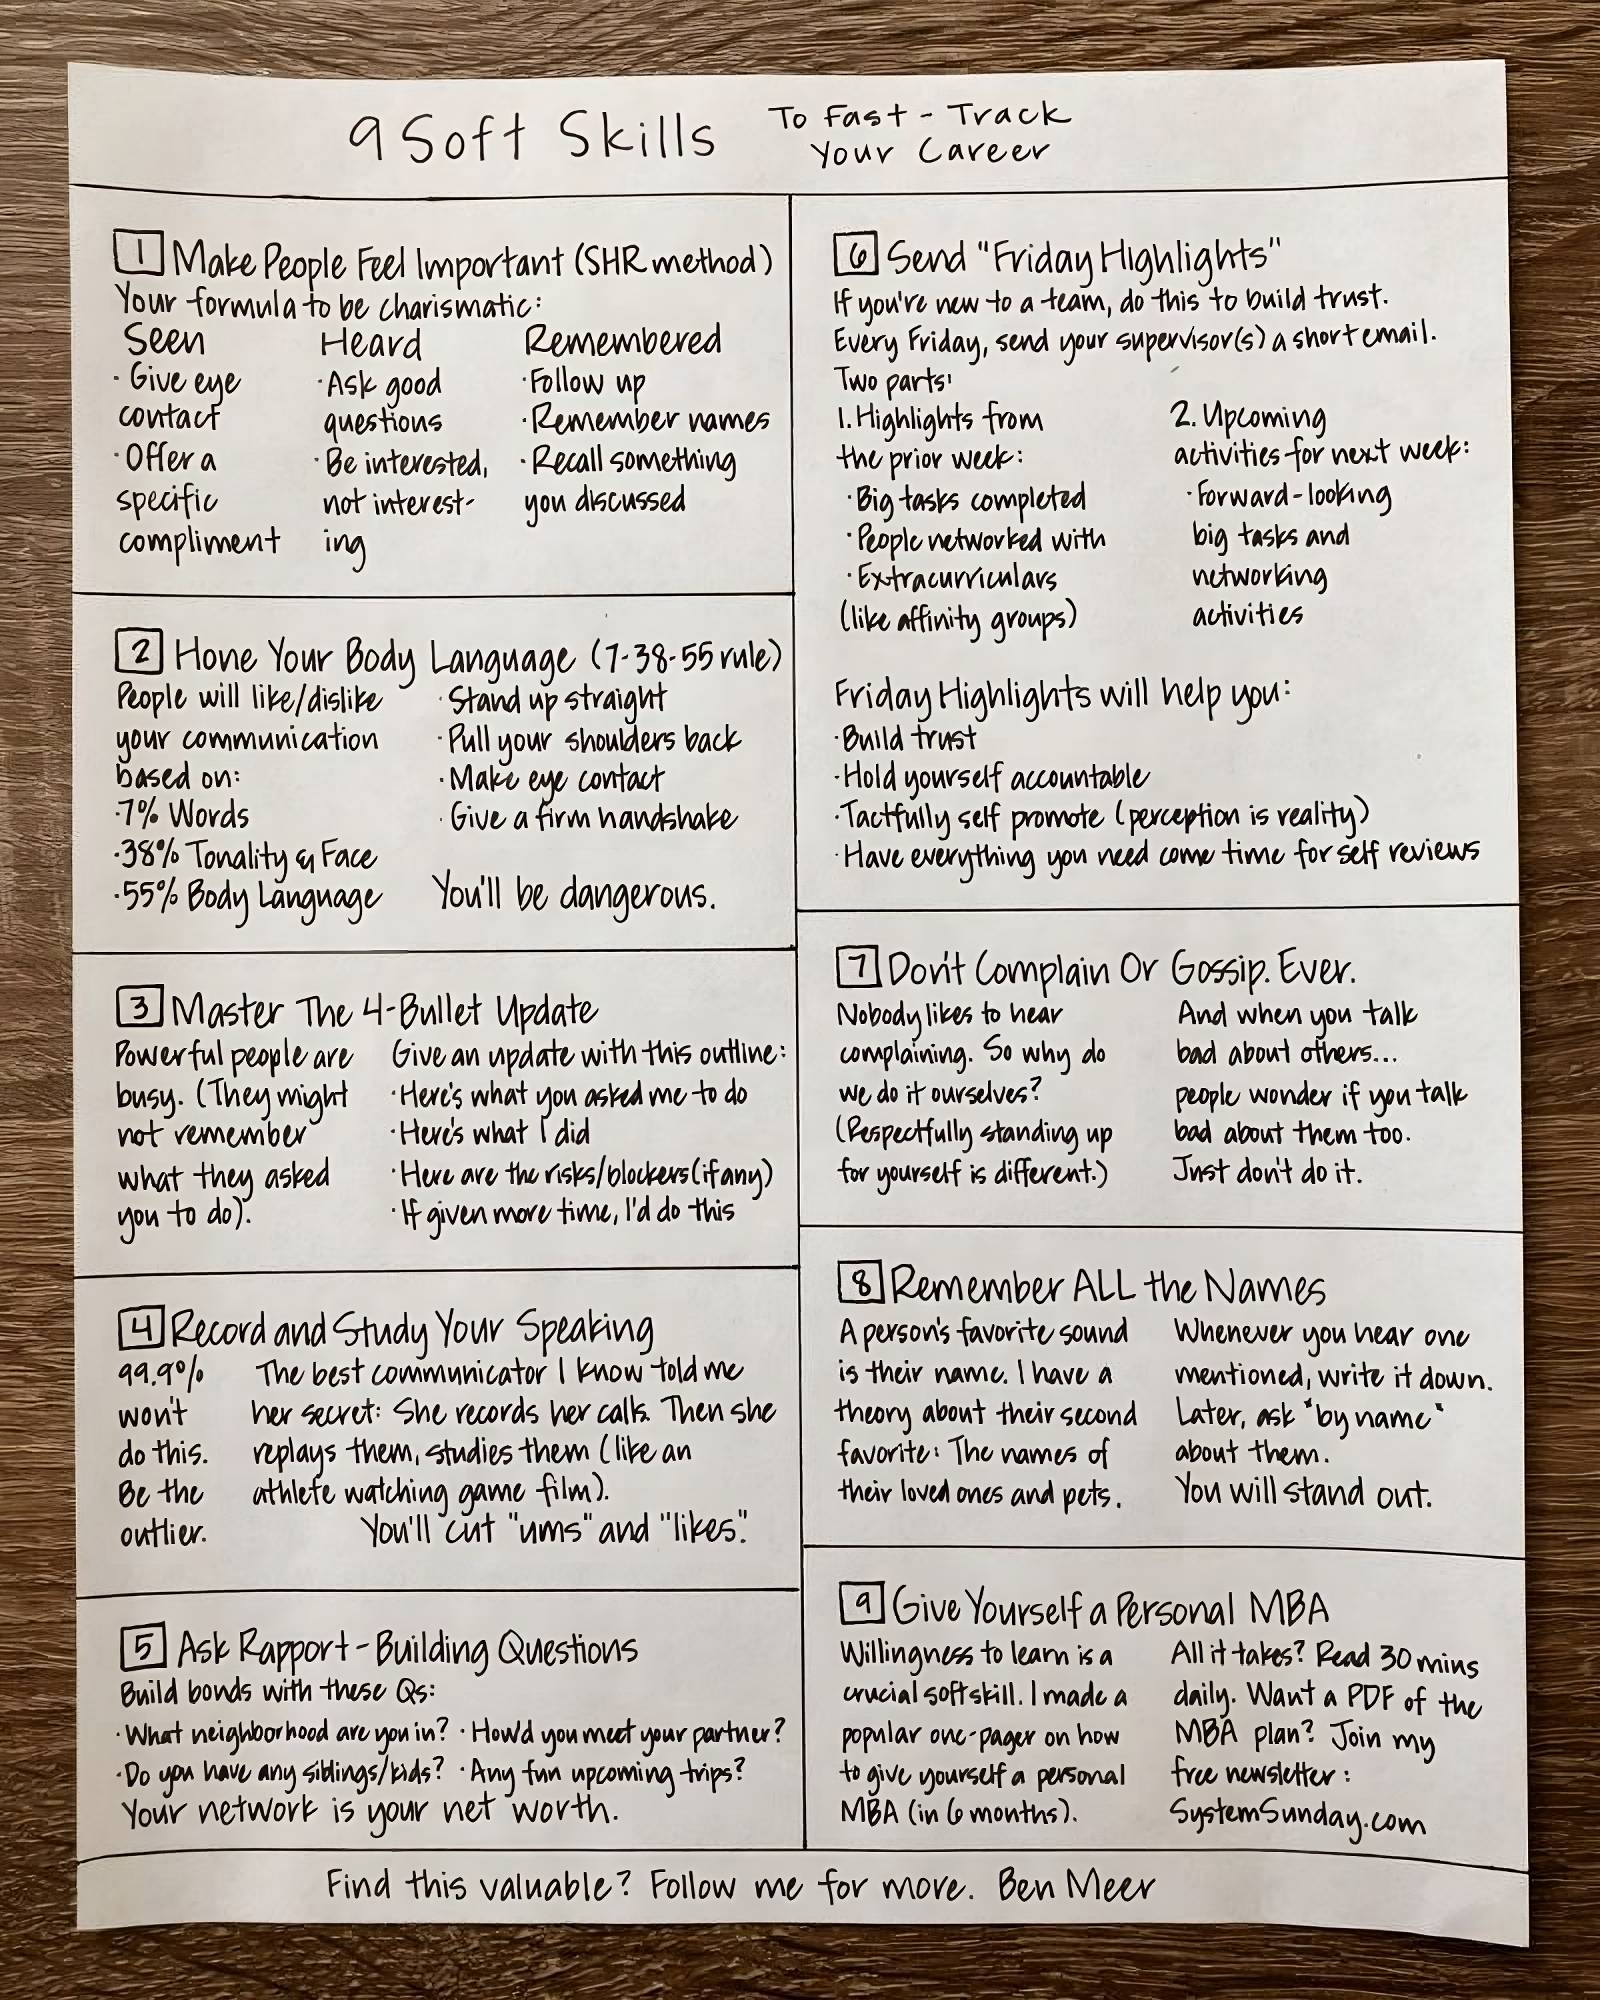 9 Soft Skills To Fast-Track
Your Career
1 Make People Feel Important (SHR method)
Your formula to be charismatic:
Seen
· Give eye
contact
· Offer a
specific
compliment
Heard
· Ask good
questions
· Be interested,
not interest-
ing
Remembered
· Follow up
· Remember names
· Recall something
you discussed
2 Hone Your Body Language (7-38-55 rule)
People will like/dislike
your communication
based on:
· 7% Words
· 38% Tonality & Face
· 55% Body Language
· Stand up straight
· Pull your shoulders back
· Make eye contact
· Give a firm handshake
You'll be dangerous.
3 Master The 4-Bullet Update
Powerful people are
busy. (They might
not remember
what they asked
you to do).
Give an update with this outline:
· Here's what you asked me to do
· Here's what I did
· Here are the risks/blockers (if any)
· If given more time, I'd do this
4 Record and Study Your Speaking
99.9%
won't
do this.
Be the
outlier.
The best communicator I know told me
her secret: She records her calls. Then she
replays them, studies them (like an
athlete watching game film).
You'll cut "ums" and "likes".
5 Ask Rapport-Building Questions
Build bonds with these Qs:
· What neighborhood are you in? · How'd you meet your partner?
· Do you have any siblings/kids? · Any fun upcoming trips?
Your network is your net worth.
6 Send "Friday Highlights"
If you're new to a team, do this to build trust.
Every Friday, send your supervisor(s) a short email.
Two parts:
1. Highlights from
the prior week:
· Big tasks completed
· People networked with
· Extracurriculars
(like affinity groups)
2. Upcoming
activities for next week:
· Forward-looking
big tasks and
networking
activities
Friday Highlights will help you:
· Build trust
· Hold yourself accountable
· Tactfully self promote (perception is reality)
· Have everything you need come time for self reviews
7 Don't Complain Or Gossip. Ever.
Nobody likes to hear
complaining. So why do
we do it ourselves?
(Respectfully standing up
for yourself is different.)
And when you talk
bad about others...
people wonder if you talk
bad about them too.
Just don't do it.
8 Remember ALL the Names
A person's favorite sound
is their name. I have a
theory about their second
favorite: The names of
their loved ones and pets.
Whenever you hear one
mentioned, write it down.
Later, ask "by name"
about them.
You will stand out.
9 Give Yourself a Personal MBA
Willingness to learn is a
crucial soft skill. I made a
popular one-pager on how
to give yourself a personal
MBA (in 6 months).
All it takes? Read 30 mins
daily. Want a PDF of the
MBA plan? Join my
free newsletter:
SystemSunday.com
Find this valuable? Follow me for more. Ben Meer